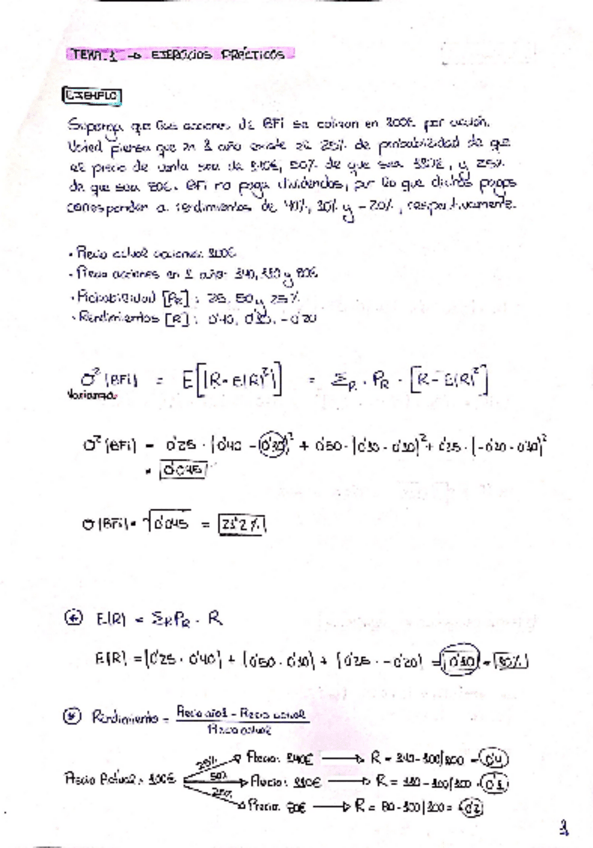 TEMA 1 → EJERCICIOS PRÁCTICOS
EJEMPLO
Suponga que las acciones de BFI se cotizan en 100€ por acción.
Usted piensa que en 1 año existe el 25% de probabilidad de que
el precio de venta sea de 140€, 50% de que sea 110€, y 25%
de que sea 80€. BFI no paga dividendos, por lo que dichos pagos
corresponden a rendimientos de 40%, 10% y -20%, respectivamente.
· Precio actual acciones: 100€
· Precio acciones en 1 año: 140, 110 y 80€
· Probabilidad [PR] : 25, 50 y 25%
· Rendimientos [R] : 0'40, 0'10, -0'20
σ² (BFI) = E[(R - E(R)²)] = ΣR · PR · [R - E(R)²]
Varianza
σ² (BFI) = 0'25 · (0'40 - 0'10)² + 0'50 · (0'10 - 0'10)² + 0'25 · (-0'20 - 0'10)²
= 0'045
σ (BFI) = √0'045 = 21'2%
E(R) = ΣR PR · R
E(R) = (0'25 · 0'40) + (0'50 · 0'10) + (0'25 · -0'20) = 0'10 = 10%
Rendimiento = Precio año1 - Precio actual
Precio actual
25% Precio: 140€ → R = 140-100/100 = 0'4
Precio Actual = 100€ 50% Precio: 110€ → R = 110-100/100 = 0'1
25% Precio: 80€ → R = 80-100/100 = -0'2
1